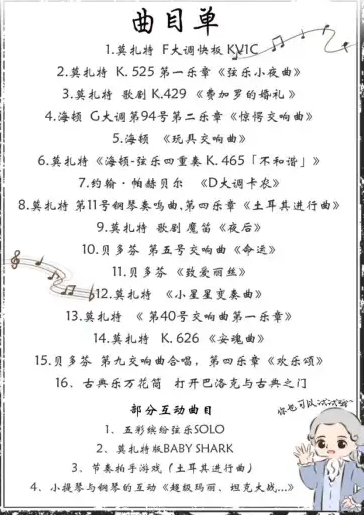 曲目单
1.莫扎特 F大调快板 KV1C
2.莫扎特 K. 525 第一乐章《弦乐小夜曲》
3.莫扎特 歌剧 K.429 《费加罗的婚礼》
4.海顿 G大调第94号第二乐章《惊愕交响曲》
5.海顿 《玩具交响曲》
6.莫扎特《海顿-弦乐四重奏 K. 465「不和谐」》
7.约翰·帕赫贝尔 《D大调卡农》
8.莫扎特 第11号钢琴奏鸣曲,第四乐章《土耳其进行曲》
9.莫扎特 歌剧 魔笛《夜后》
10.贝多芬 第五号交响曲《命运》
11.贝多芬 《致爱丽丝》
12.莫扎特 《小星星变奏曲》
13.莫扎特 《第40号交响曲第一乐章》
14.莫扎特 K. 626 《安魂曲》
15.贝多芬 第九交响曲合唱，第四乐章《欢乐颂》
16、古典乐万花筒 打开巴洛克与古典之门
你也可以试试呀
部分互动曲目
1、五彩缤纷弦乐SOLO
2、莫扎特版BABY SHARK
3、节奏拍手游戏（土耳其进行曲）
4、小提琴与钢琴的互动《超级玛丽、坦克大战...》